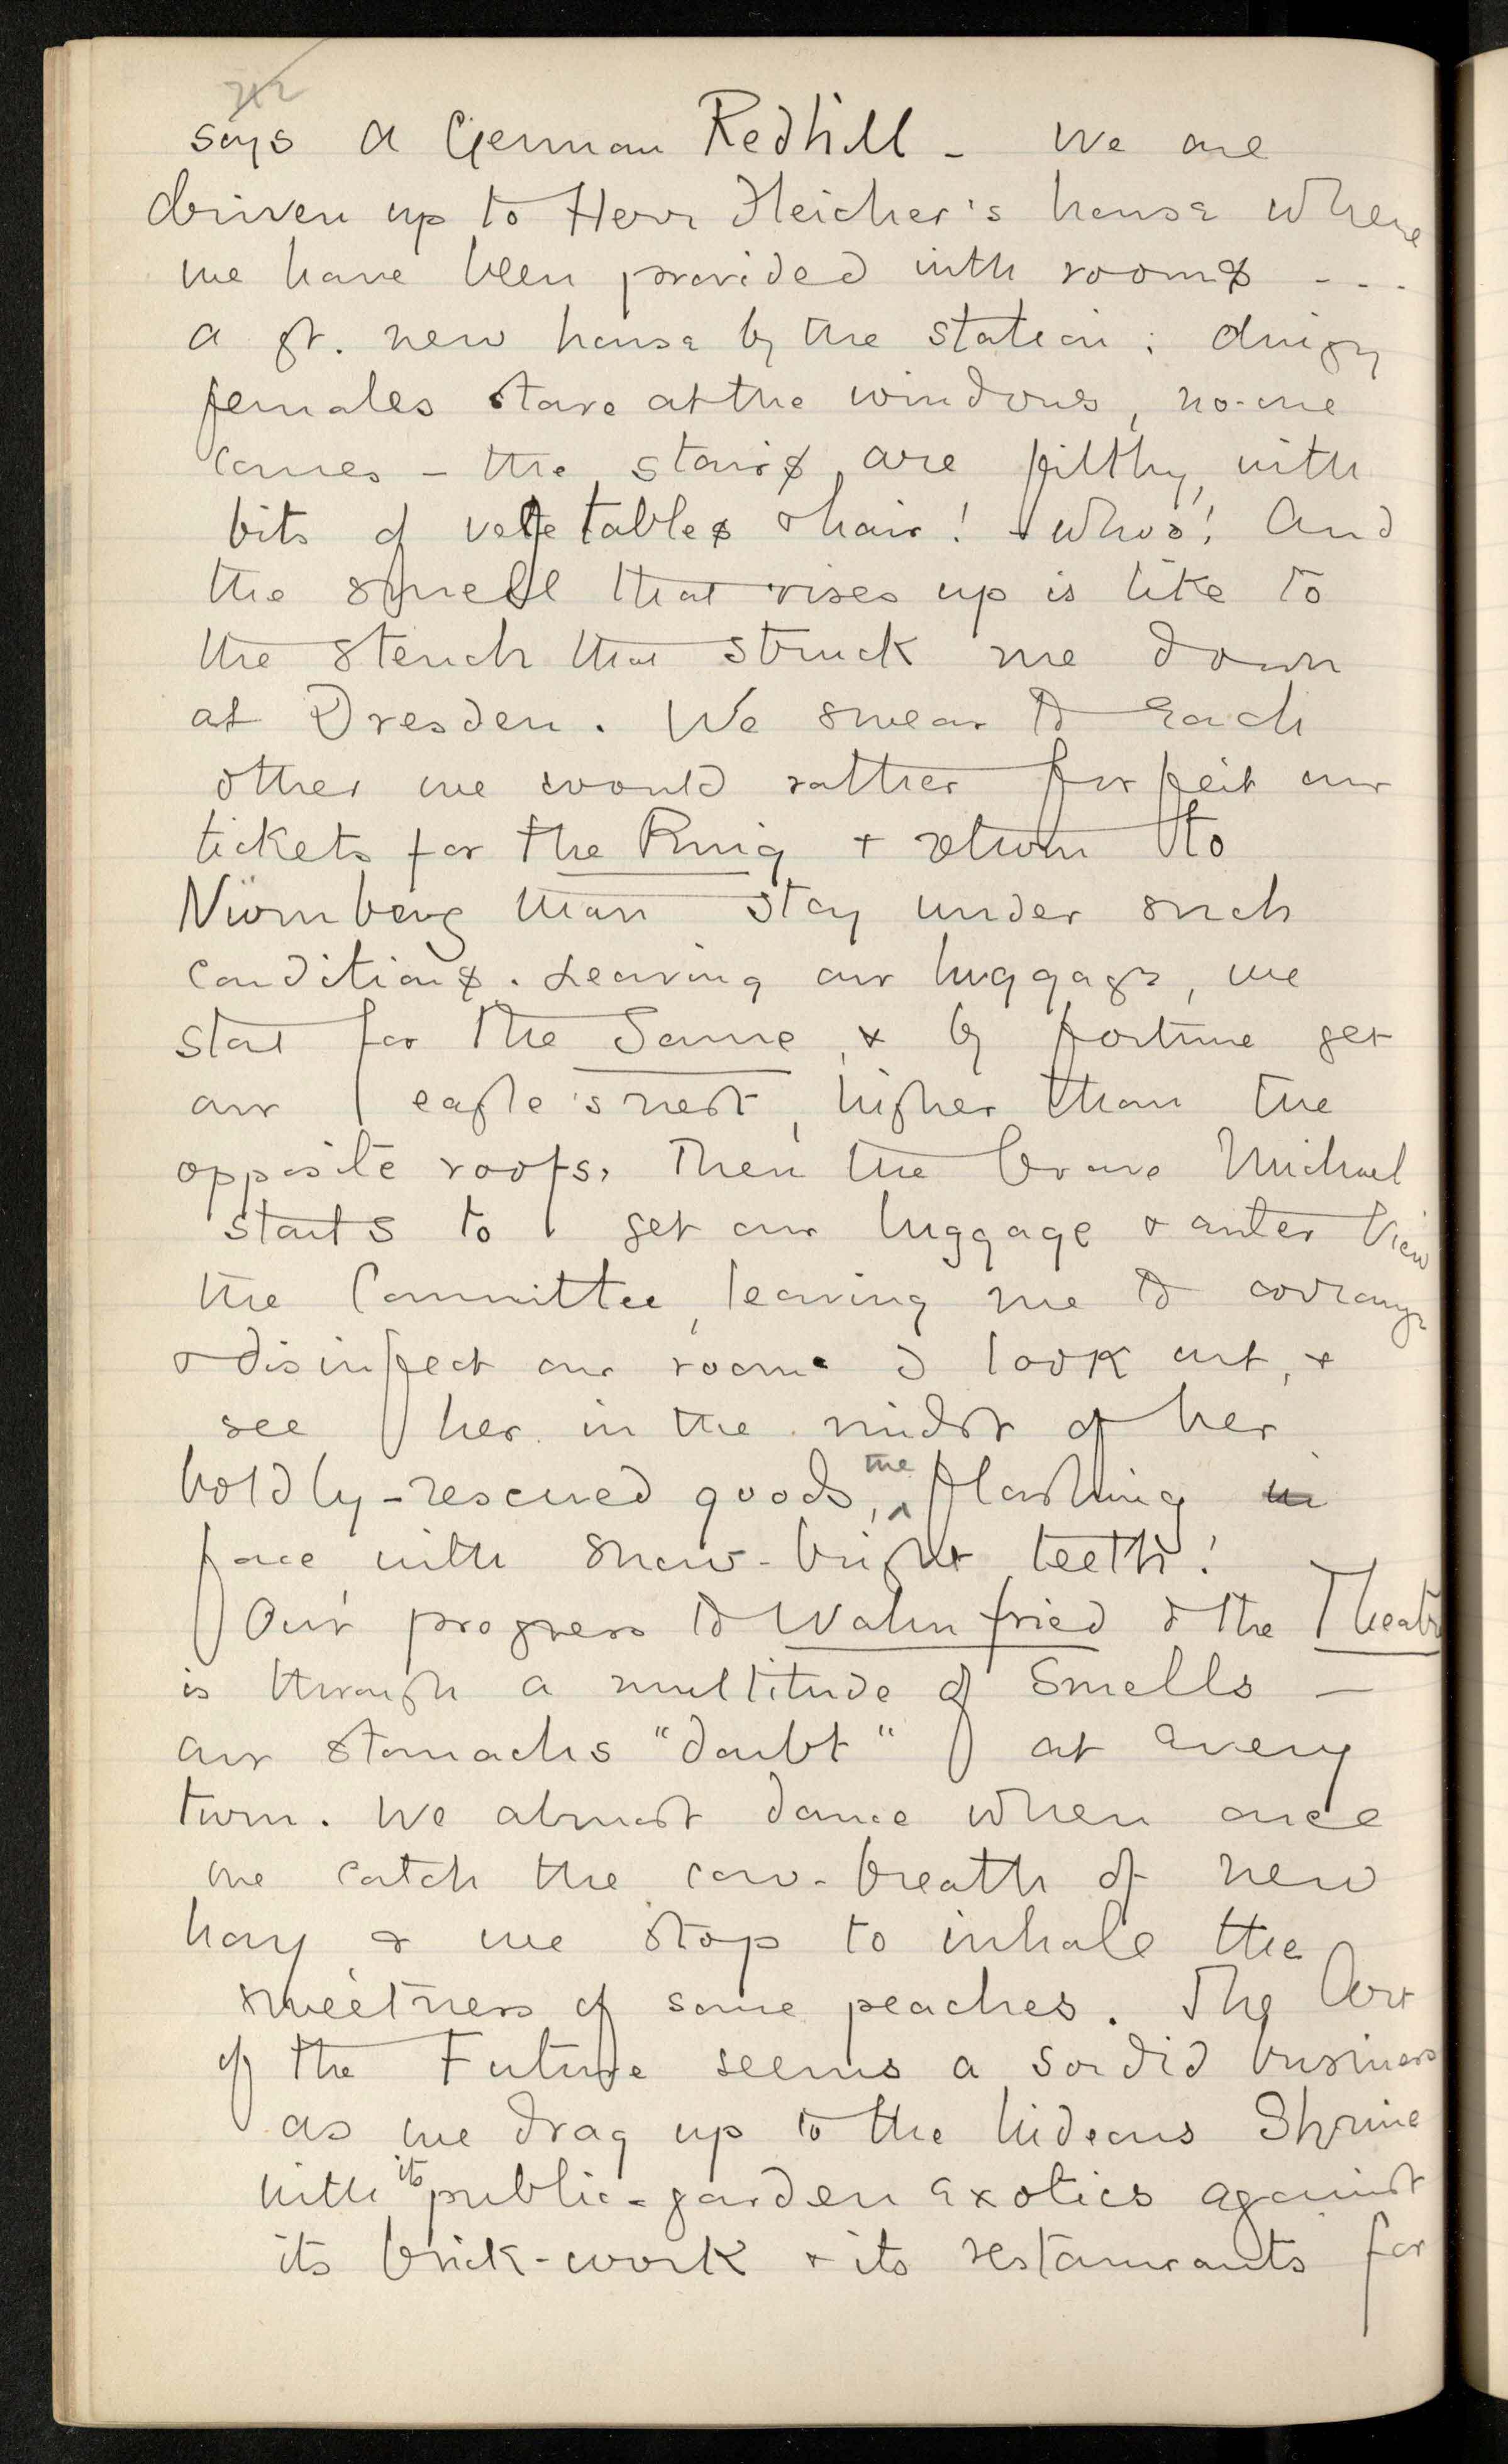 says a German Redhill – We are
driven up to Herr Fleicher's house where
we have been provided with rooms ...
a gt. new house by the station; dingy
females stare at the windows, no-one
comes – the stairs are filthy, with
bits of vegetables & hair! & whose! And
the smell that rises up is like to
the stench that struck me down
at Dresden. We swear to each
other we would rather forfeit our
tickets for the Ring & return to
Nürnberg than stay under such
conditions. Leaving our luggage, we
start for the Sonne, & by fortune get
our eagle's nest, higher than the
opposite roofs. Then the brave Michael
starts to get our luggage & inter view
the Committee, leaving me to arrange
& disinfect our room. I look out, &
see her in the midst of her
boldly-rescued goods, the flashing in
face with snow-bright teeth!
Our progress to Wahnfried & the Theatre
is through a multitude of Smells –
our stomachs "doubt" at every
turn. We almost dance when once
we catch the cow-breath of new
hay & we stop to inhale the
sweetness of some peaches. The Art
of the Future seems a sordid business
as we drag up to the hideous Shrine
with its public-garden exotics against
its brick-work & its restaurants for